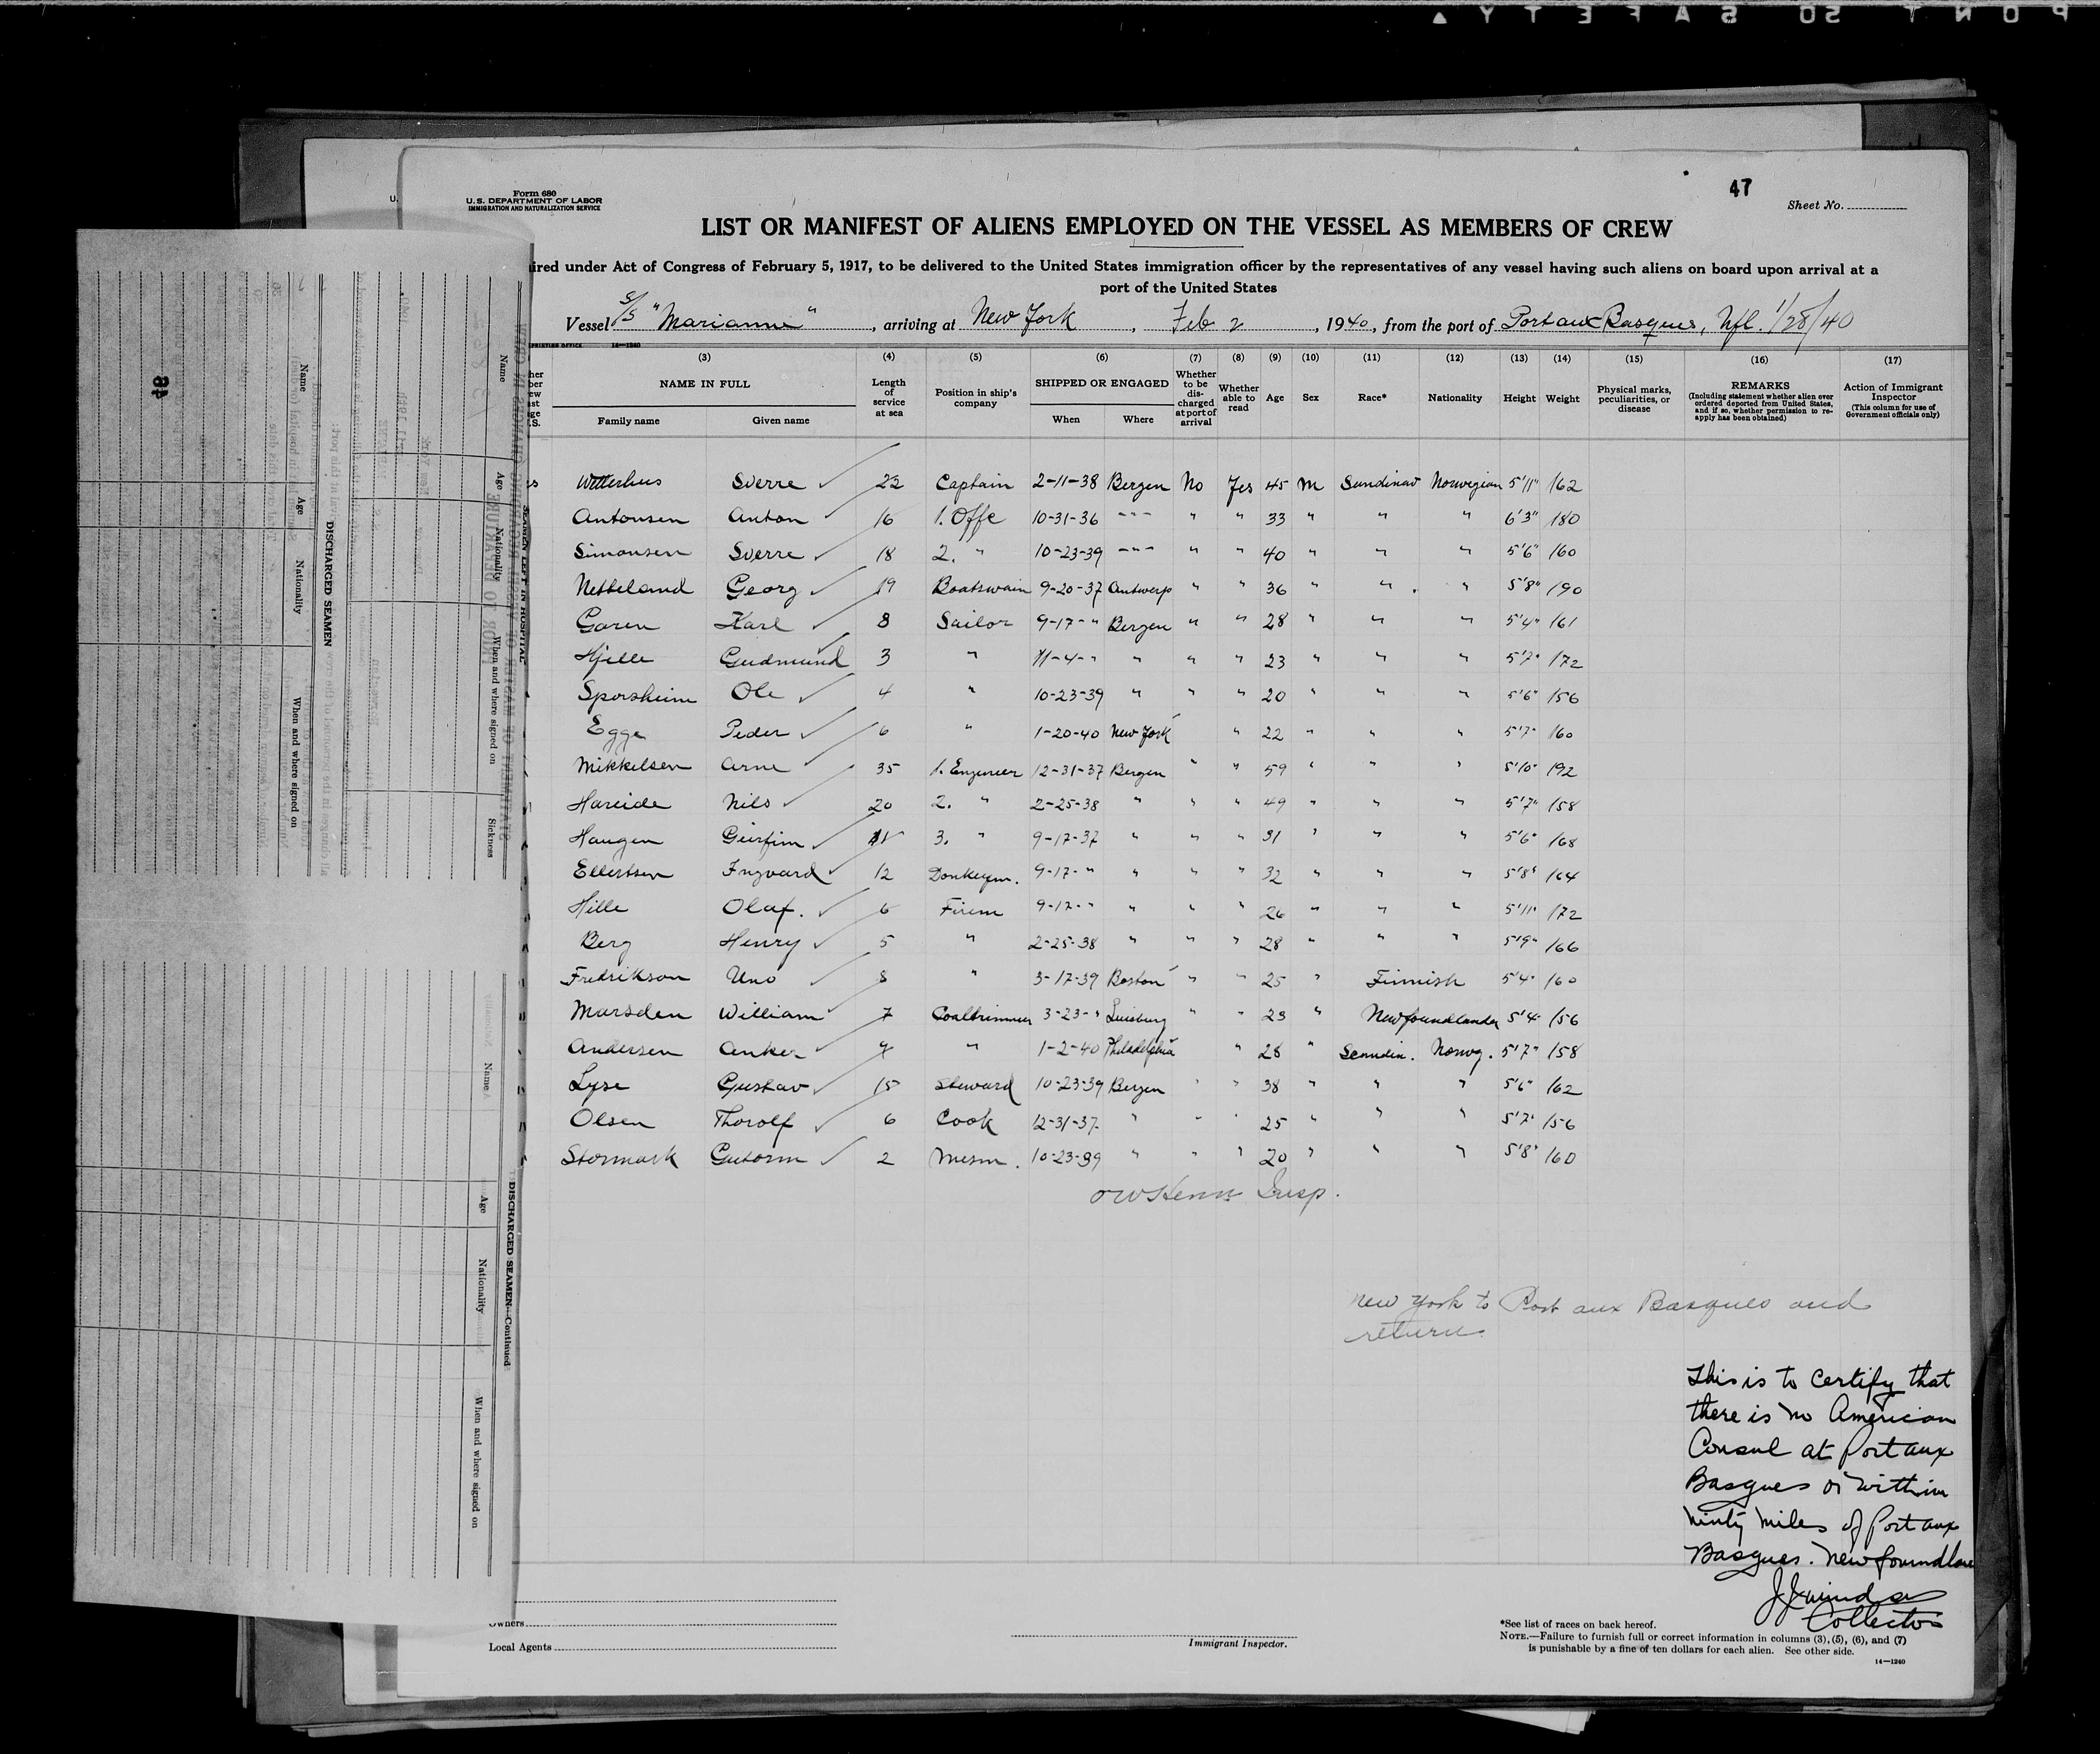 PONT SO SAFETY ▲
47
Form 680
U.S. DEPARTMENT OF LABOR
IMMIGRATION AND NATURALIZATION SERVICE
Sheet No.
LIST OR MANIFEST OF ALIENS EMPLOYED ON THE VESSEL AS MEMBERS OF CREW
ired under Act of Congress of February 5, 1917, to be delivered to the United States immigration officer by the representatives of any vessel having such aliens on board upon arrival at a
port of the United States
Vessel S/S "Marianne", arriving at New York, Feb 2, 1940, from the port of Port aux Basques, Nfl. 1/28/40
(3) (4) (5) (6) (7) (8) (9) (10) (11) (12) (13) (14) (15) (16) (17)
NAME IN FULL
Family name Given name
Length of service at sea
Position in ship's company
SHIPPED OR ENGAGED
When Where
Whether to be discharged at port of arrival
Whether able to read
Age Sex Race* Nationality Height Weight
Physical marks, peculiarities, or disease
REMARKS
(Including statement whether alien ever ordered deported from United States, and if so, whether permission to reapply has been obtained)
Action of Immigrant Inspector
(This column for use of Government officials only)
Sverre 22 Captain 2-11-38 Bergen No Yes 45 M Scandinav Norwegian 5'11" 162
Antonsen Anton 16 1. Offc 10-31-36 -"- " " 33 " " " 6'3" 180
Simonsen Sverre 18 2. " 10-23-39 -"- " " 40 " " " 5'6" 160
Nesseland Georg 19 Boatswain 9-20-37 Antwerp " " 36 " " " 5'8" 190
Garen Karl 8 Sailor 9-17-" Bergen " " 28 " " " 5'4" 161
Hjelle Gudmund 3 " 11-4-" " " " 23 " " " 5'7" 172
Sporsheim Ole 4 " 10-23-39 " " " 20 " " " 5'6" 156
Egge Peder 6 " 1-20-40 New York " 22 " " " 5'7" 160
Mikkelsen Arne 35 1. Engineer 12-31-37 Bergen " " 59 " " " 5'10" 192
Hareide Nils 20 2. " 2-25-38 " " " 49 " " " 5'7" 158
Haugen Geirfinn 3. " 9-17-37 " " " 31 " " " 5'6" 168
Ellertsen Ingvard 12 Donkeym. 9-17-" " " " 32 " " " 5'8" 164
Hille Olaf. 6 Firem 9-17-" " " " 26 " " " 5'11" 172
Berg Henry 5 " 2-25-38 " " " 28 " " " 5'9" 166
Fredrikson Uno 8 " 3-17-39 Boston " " 25 " Finnish 5'4" 160
Marsden William 7 Coaltrimmer 3-23-" Luisburg " " 23 " Newfoundlander 5'4" 156
Andersen Anker " 1-2-40 Philadelphia " 28 " Scandin. Norwg. 5'7" 158
Lyse Gustav 15 Steward 10-23-39 Bergen " " 38 " " " 5'6" 162
Olsen Thorolf 6 Cook 12-31-37 " " " 25 " " " 5'7" 156
Stormark Guttorm 2 Mesm. 10-23-39 " " " 20 " " " 5'8" 160
Insp.
New York to Port aux Basques and
return
This is to certify that
there is no American
Consul at Port aux
Basques or within
ninty miles of Port aux
Basques. Newfoundland
Collector
Owners
Local Agents
Immigrant Inspector.
*See list of races on back hereof.
NOTE.—Failure to furnish full or correct information in columns (3), (5), (6), and (7)
is punishable by a fine of ten dollars for each alien. See other side.
14—1240
DISCHARGED SEAMEN
Name Age Nationality When and where signed on
SEAMEN LEFT IN HOSPITAL
Name Age Nationality When and where signed on Sickness
DISCHARGED SEAMEN—Continued
Name Age Nationality When and where signed on